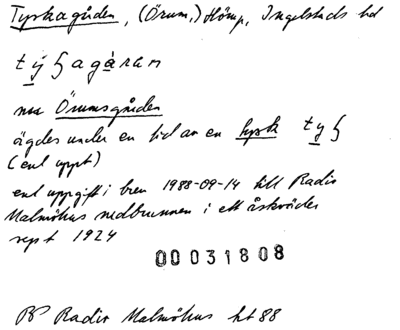 Tyskagården, (Örum,) Hömp, Ingelstads hd
tyʃagåran
nu Örumsgården
ägdes under en tid av en tysk tyʃ
(enl uppt)
enl uppgift i brev 1988-09-14 till Radio
Malmöhus nedbrunnen i ett åskväder
sept 1924
00031808
Radio Malmöhus ht 88